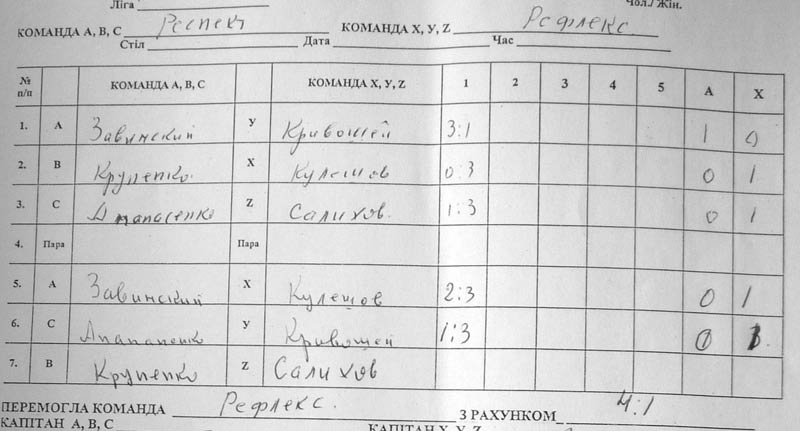 Ліга Чол./ Жін.
КОМАНДА А, В, С Респект КОМАНДА Х, У, Z Рефлекс.
Стіл Дата Час
№ п/п КОМАНДА А, В, С КОМАНДА Х, У, Z 1 2 3 4 5 А Х
1. А Завинский У Кривошей 3:1 1 0
2. В Крупенко Х Кулешов 0:3 0 1
3. С Z Салихов. 1:3 0 1
4. Пара Пара
5. А Завинский Х Кулешов 2:3 0 1
6. С У Кривошей 1:3 0 1
7. В Крупенко Z Салихов
ПЕРЕМОГЛА КОМАНДА Рефлекс. З РАХУНКОМ 4:1
КАПІТАН А, В, С КАПІТАН Х, У, Z